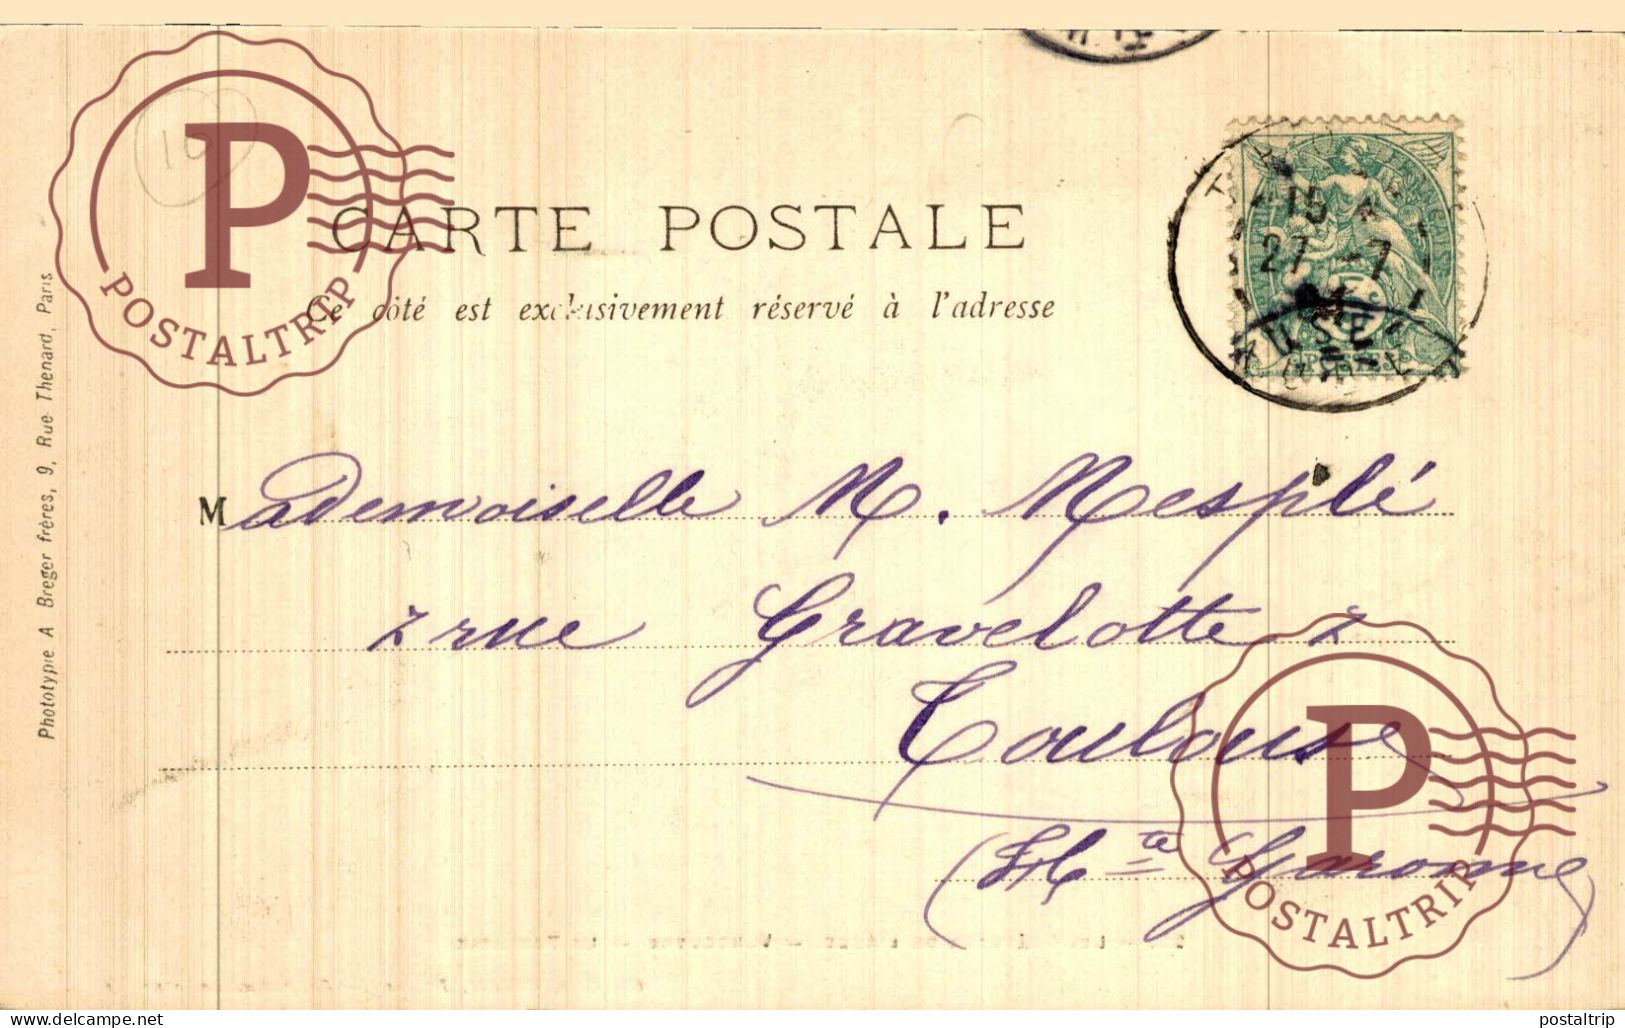 16
CARTE POSTALE
Ce côté est exclusivement réservé à l'adresse
15
27 -7
04
POSTES
Mademoiselle M. Mesplé
2 rue Gravelotte 2
Toulouse
(Hte Garonne)
Phototypie A Breger frères, 9, Rue Thenard, Paris
P
POSTALTRIP
P
POSTALTRIP
delcampe.net
postaltrip